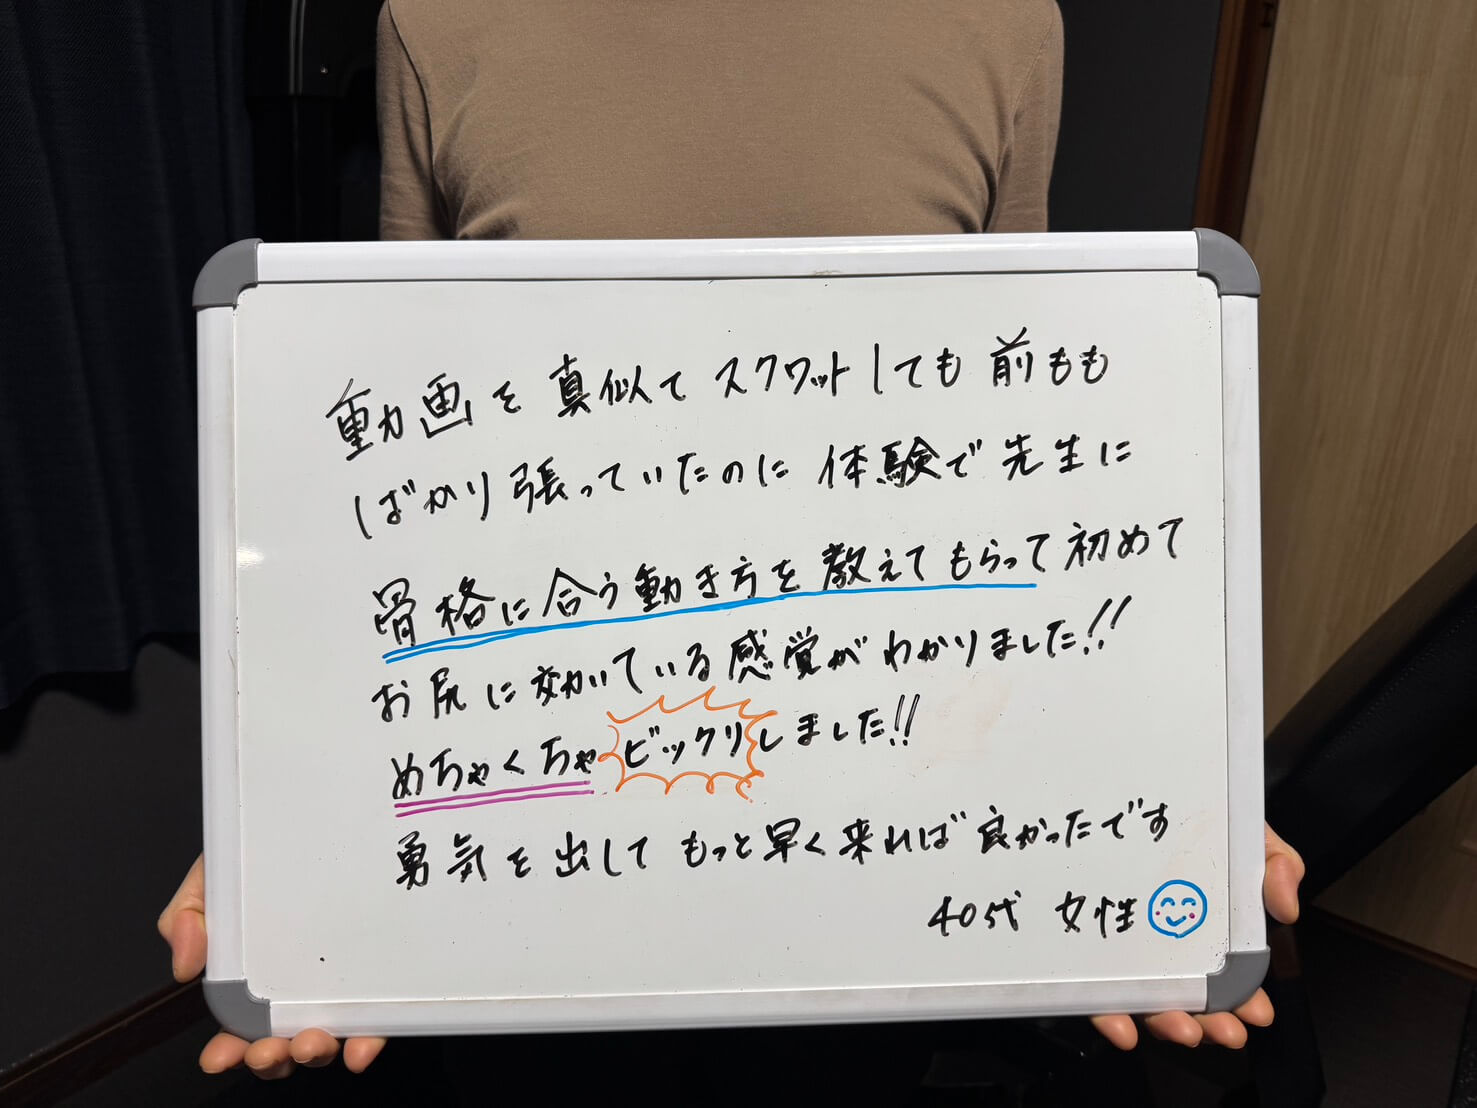 動画を真似てスクワットしても前もも
ばかり張っていたのに体験で先生に
骨格に合う動き方を教えてもらって初めて
お尻に効いている感覚がわかりました!!
めちゃくちゃビックリしました!!
勇気を出してもっと早く来れば良かったです
40代 女性